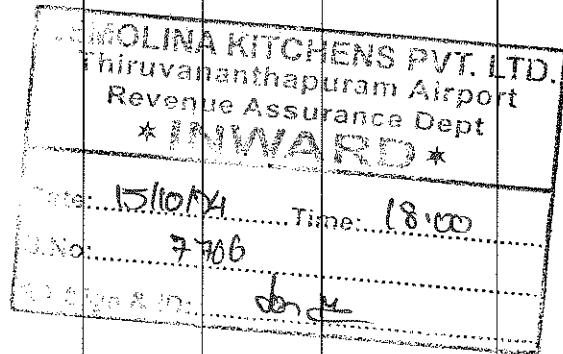 SEMOLINA KITCHENS PVT. LTD.
Thiruvananthapuram Airport
Revenue Assurance Dept
* INWARD *
Date: 15/10/24 Time: 18:00
No: 7706
Sign & ID: